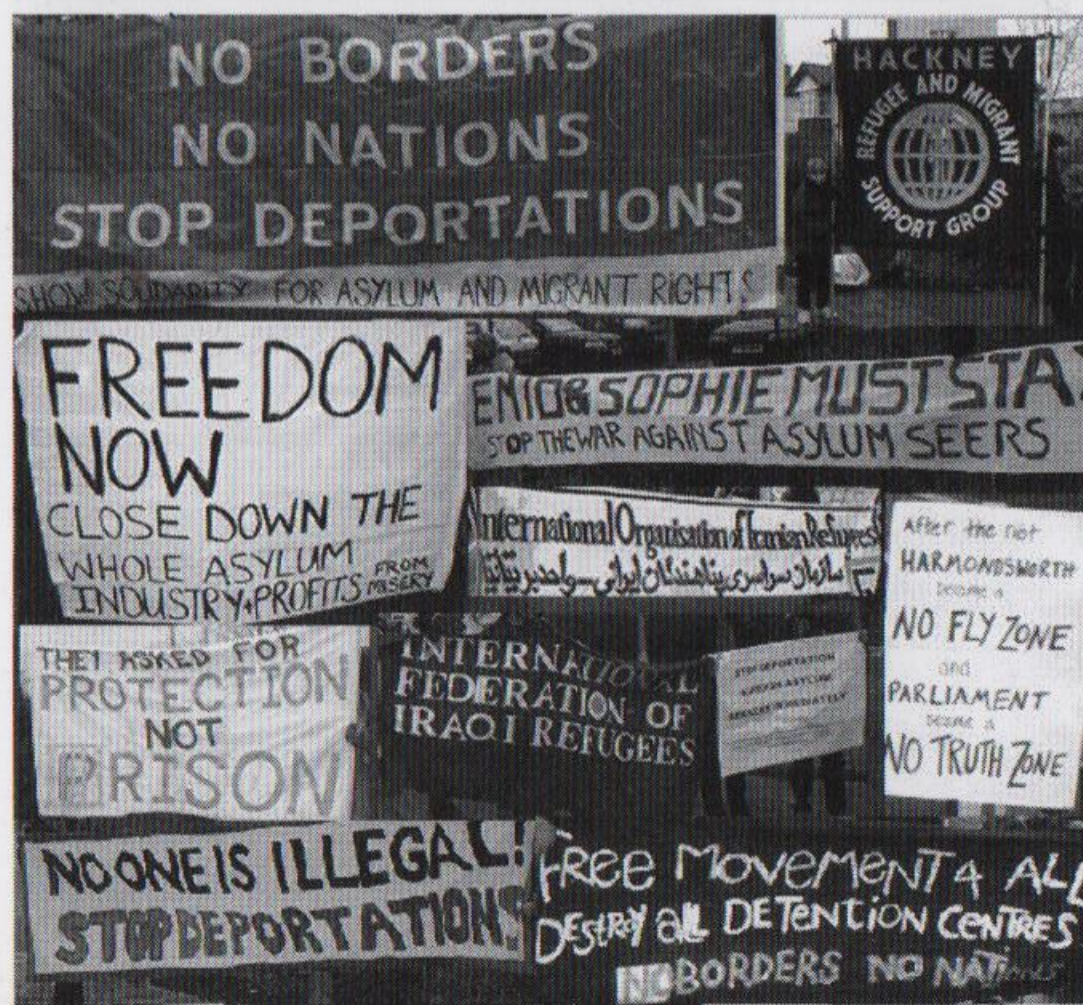 NO BORDERS
NO NATIONS
STOP DEPORTATIONS
SHOW SOLIDARITY FOR ASYLUM AND MIGRANT RIGHTS
HACKNEY
REFUGEE AND MIGRANT
SUPPORT GROUP
FREEDOM
NOW
CLOSE DOWN THE
WHOLE ASYLUM
INDUSTRY + PROFITS FROM MISERY
& SOPHIE MUST STAY
STOP THE WAR AGAINST ASYLUM SEERS
International Organisation of Iranian Refugees
سازمان سراسری پناهندگان ایرانی - واحد بریتانیا
After the riot
HARMONDSWORTH
became a
NO FLY ZONE
and
PARLIAMENT
became a
NO TRUTH ZONE
THEY ASKED FOR
PROTECTION
NOT
PRISON
INTERNATIONAL
FEDERATION OF
IRAQI REFUGEES
STOP DEPORTATION
NO ONE IS ILLEGAL!
STOP DEPORTATIONS
FREE MOVEMENT 4 ALL
DESTROY all DETENTION CENTRES
NO BORDERS NO NATIONS